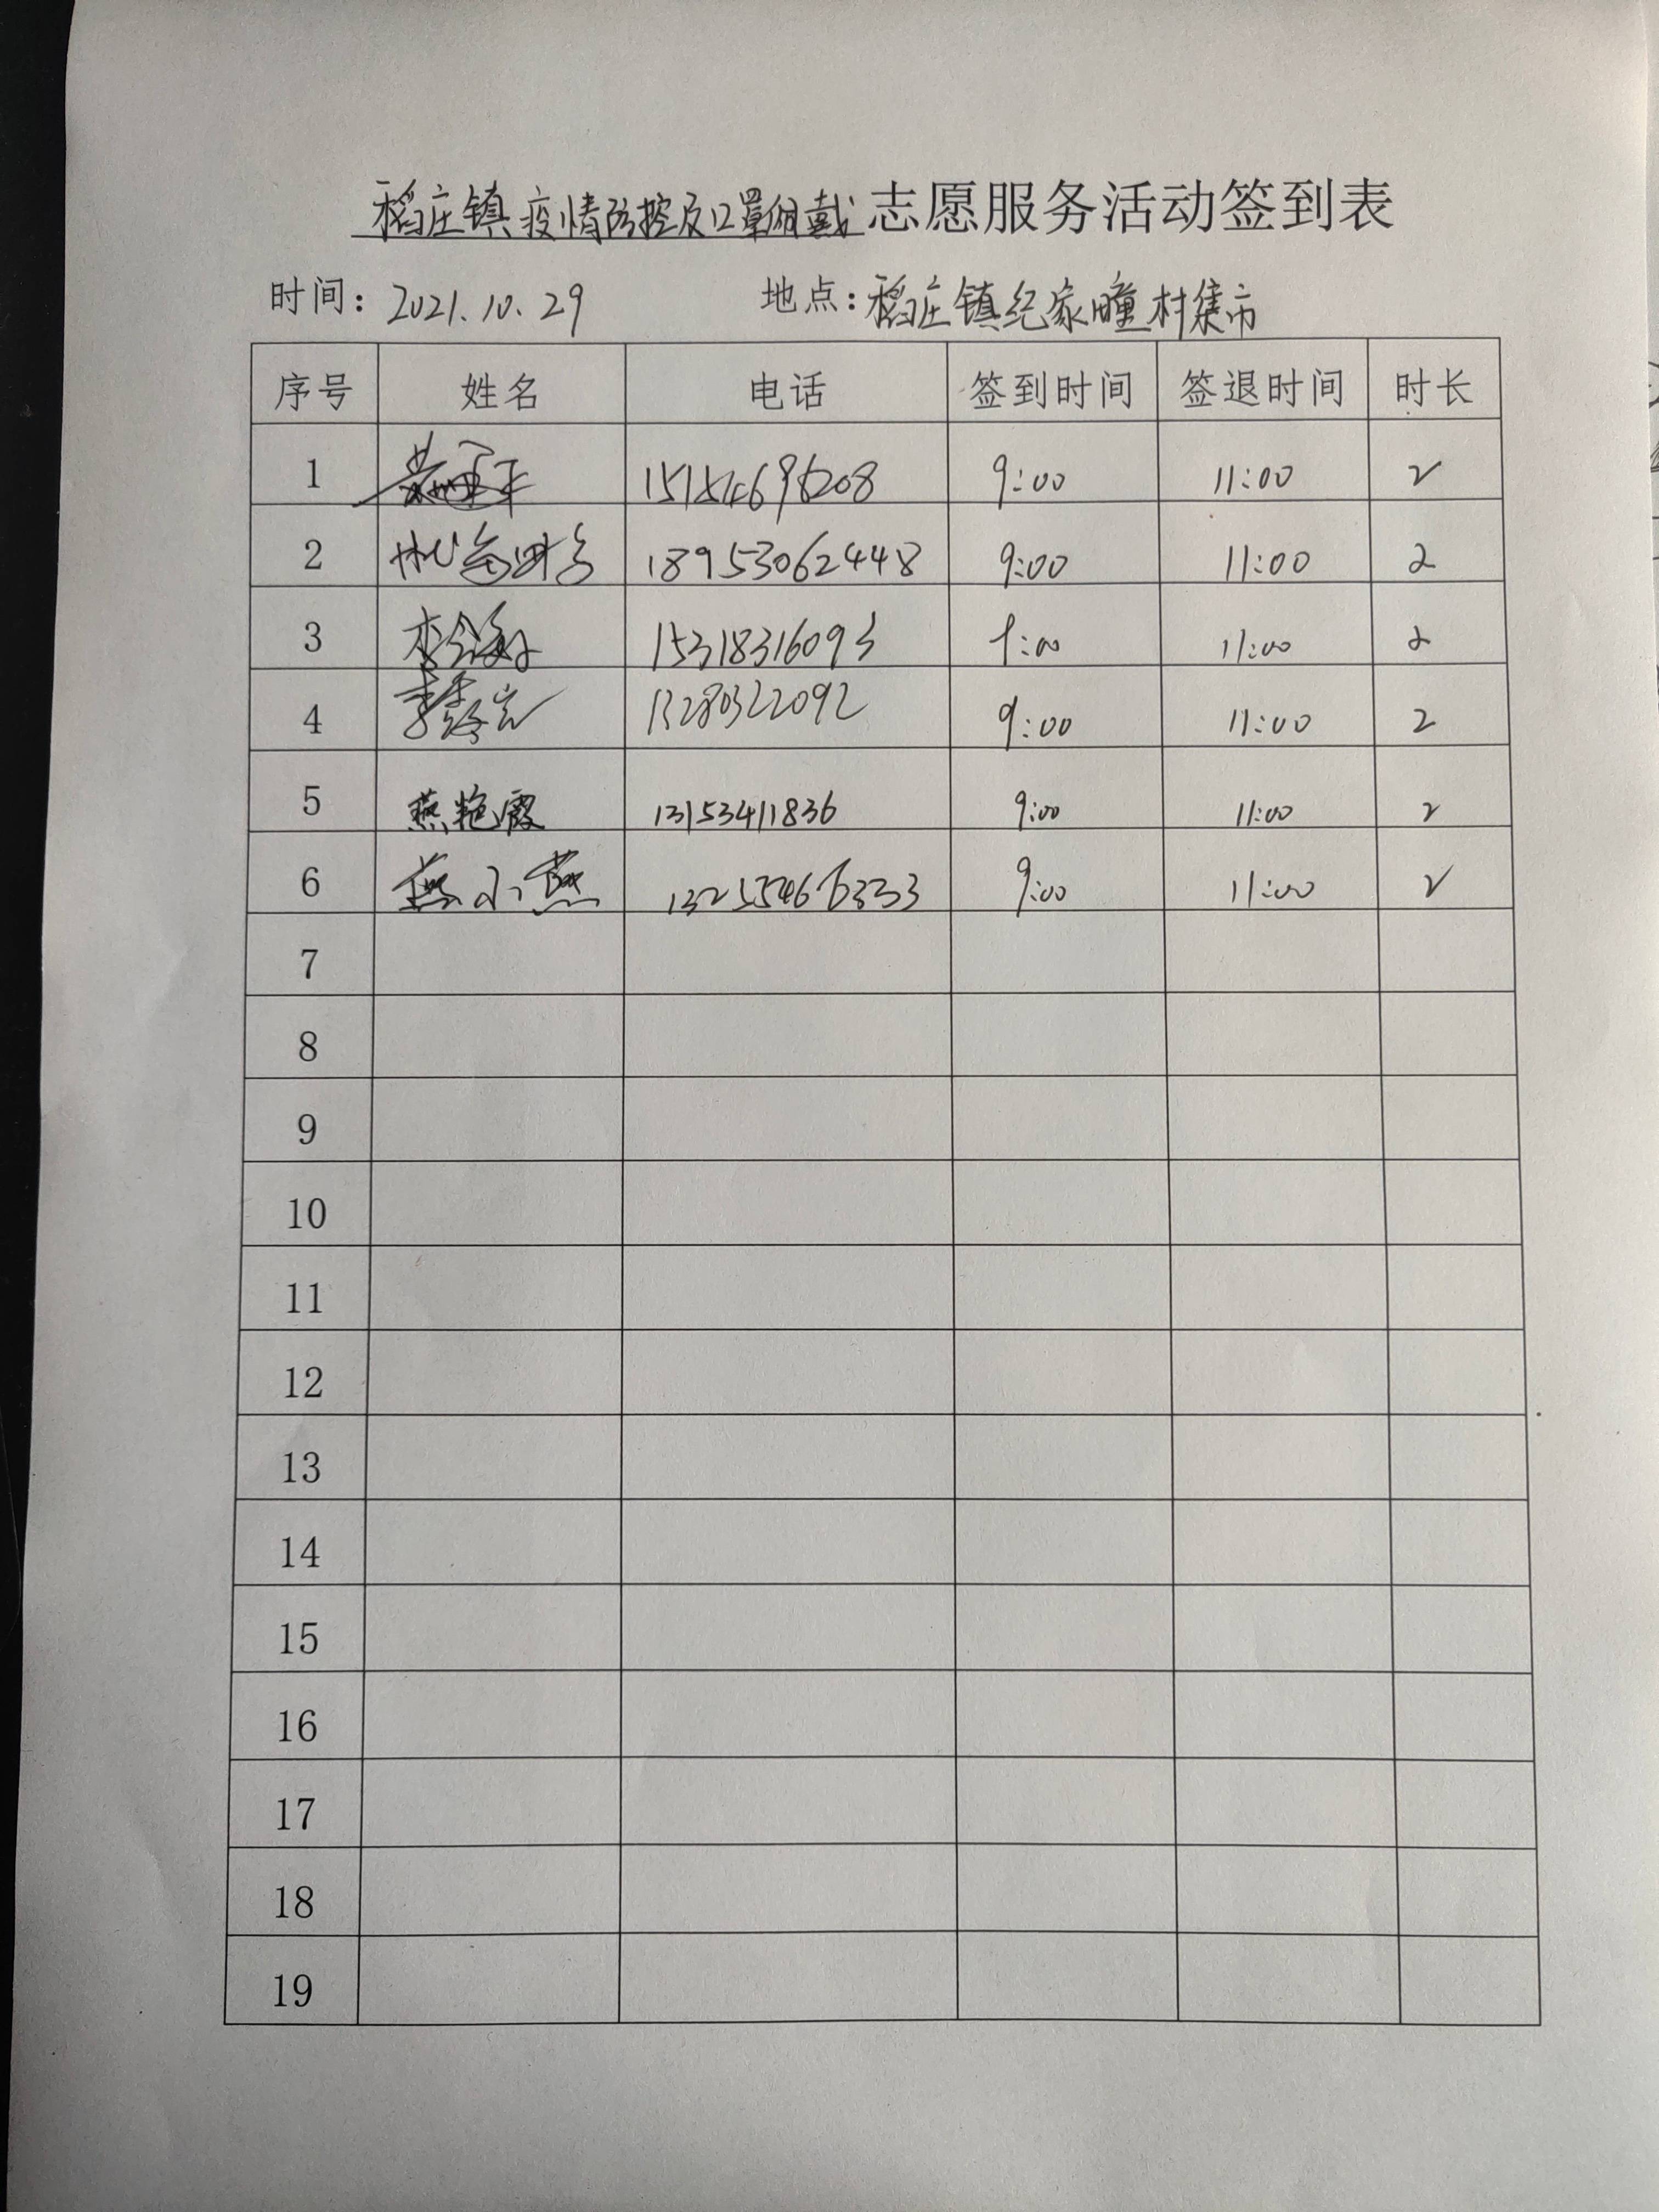 稻庄镇疫情防控及口罩佩戴志愿服务活动签到表
时间: 2021.10.29 地点: 稻庄镇纪家疃村集市
序号 姓名 电话 签到时间 签退时间 时长
1 9:00 11:00 2
2 18953062448 9:00 11:00 2
3 15318316093 9:00 11:00 2
4 13280322092 9:00 11:00 2
5 燕艳霞 13153411836 9:00 11:00 2
6 燕小燕 13255466333 9:00 11:00 2
7
8
9
10
11
12
13
14
15
16
17
18
19